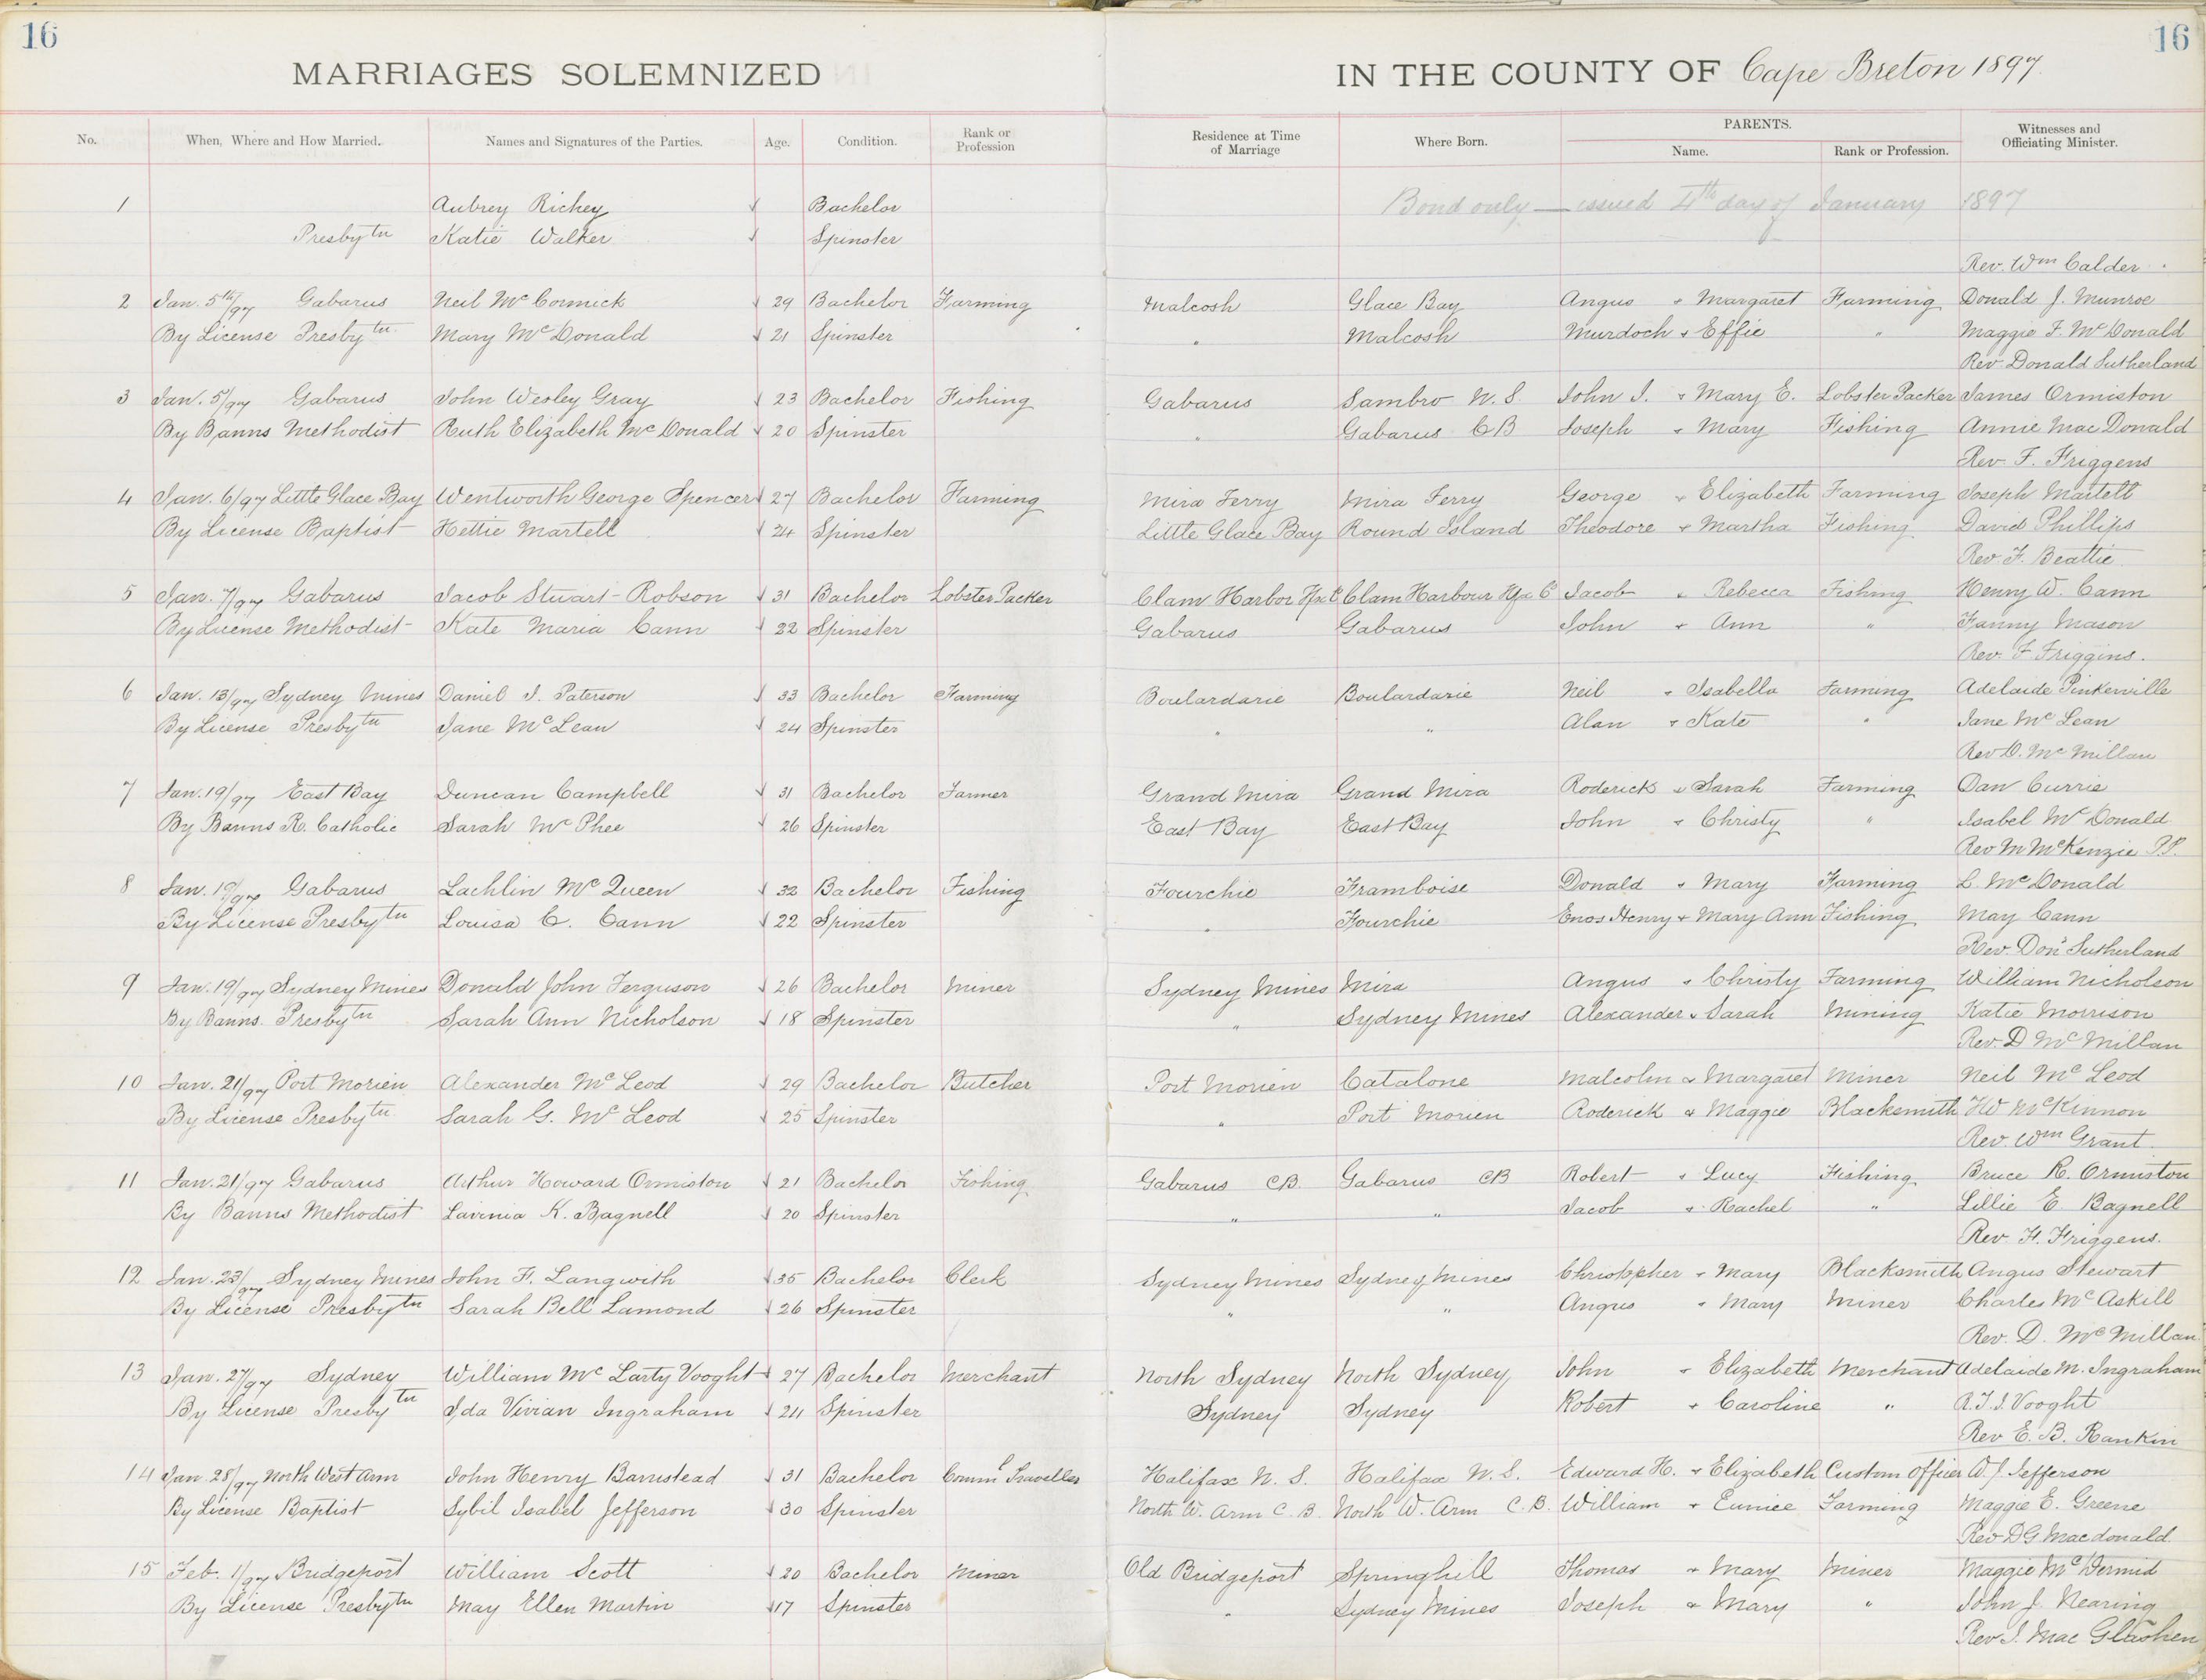 16 16
MARRIAGES SOLEMNIZED IN THE COUNTY OF Cape Breton 1897.
No. When, Where and How Married. Names and Signatures of the Parties. Age. Condition. Rank or Profession Residence at Time of Marriage Where Born. PARENTS. Name. Rank or Profession. Witnesses and Officiating Minister.
1 Aubrey Richey ✓ Bachelor Bond only — issued 4th day of January 1897
Presbytn Katie Walker ✓ Spinster
Rev. Wm Calder.
2 Jan. 5th/97 Gabarus Neil McCormick ✓ 29 Bachelor Farming Malcosh Glace Bay Angus & Margaret Farming Donald J. Munroe
By License Presbytn Mary McDonald ✓ 21 Spinster " Malcosh Murdoch & Effie " Maggie F. McDonald
Rev Donald Sutherland
3 Jan. 5/97 Gabarus John Wesley Gray ✓ 23 Bachelor Fishing Gabarus Sambro N.S. John I. & Mary E. Lobster Packer James Ormiston
By Banns Methodist Ruth Elizabeth McDonald ✓ 20 Spinster " Gabarus CB Joseph & Mary Fishing Annie MacDonald
Rev. F. Friggens
4 Jan. 6/97 Little Glace Bay Wentworth George Spencer ✓ 27 Bachelor Farming Mira Ferry Mira Ferry George & Elizabeth Farming Joseph Martell
By License Baptist Hettie Martell ✓ 24 Spinster Little Glace Bay Round Island Theodore & Martha Fishing David Phillips
Rev. F. Beattie
5 Jan. 7/97 Gabarus Jacob Stuart Robson ✓ 31 Bachelor Lobster Packer Clam Harbor Hfx C Clam Harbour Hfx C Jacob & Rebecca Fishing Henry W. Cann
By License Methodist Kate Maria Cann ✓ 22 Spinster Gabarus Gabarus John & Ann " Fanny Mason
Rev. F Friggins.
6 Jan. 13/97 Sydney Mines Daniel I. Paterson ✓ 33 Bachelor Farming Boulardarie Boulardarie Neil & Isabella Farming Adelaide Pinkerville
By License Presbytn Jane McLean ✓ 24 Spinster " " Alan & Kate " Jane McLean
Rev D. McMillan
7 Jan. 19/97 East Bay Duncan Campbell ✓ 31 Bachelor Farmer Grand Mira Grand Mira Roderick & Sarah Farming Dan Currie
By Banns R. Catholic Sarah McPhee ✓ 26 Spinster East Bay East Bay John & Christy " Isabel McDonald
Rev M McKenzie P.P.
8 Jan. 19/97 Gabarus Lachlin McQueen ✓ 32 Bachelor Fishing Fourchie Framboise Donald & Mary Farming L. McDonald
By License Presbytn Louisa C. Cann ✓ 22 Spinster " Fourchie Enos Henry & Mary Ann Fishing May Cann
Rev. Don Sutherland
9 Jan. 19/97 Sydney Mines Donald John Ferguson ✓ 26 Bachelor Miner Sydney Mines Mira Angus & Christy Farming William Nicholson
By Banns Presbytn Sarah Ann Nicholson ✓ 18 Spinster " Sydney Mines Alexander & Sarah Mining Katie Morrison
Rev. D McMillan
10 Jan. 21/97 Port Morien Alexander McLeod ✓ 29 Bachelor Butcher Port Morien Catalone Malcolm & Margaret Miner Neil McLeod
By License Presbytn Sarah G. McLeod ✓ 25 Spinster " Port Morien Roderick & Maggie Blacksmith McKinnon
Rev. Wm Grant
11 Jan. 21/97 Gabarus Arthur Howard Ormiston ✓ 21 Bachelor Fishing Gabarus CB Gabarus CB Robert & Lucy Fishing Bruce R. Ormiston
By Banns Methodist Lavinia K. Bagnell ✓ 20 Spinster " " Jacob & Rachel " Lillie E. Bagnell
Rev. F. Friggens.
12 Jan. 23/97 Sydney Mines John F. Langwith ✓ 35 Bachelor Clerk Sydney Mines Sydney Mines Christopher & Mary Blacksmith Angus Stewart
By License Presbytn Sarah Bell Lamond ✓ 26 Spinster " " Angus & Mary Miner Charles McAskill
Rev. D. McMillan
13 Jan. 27/97 Sydney William McLarty Vooght ✓ 27 Bachelor Merchant North Sydney North Sydney John & Elizabeth Merchant Adelaide M. Ingraham
By License Presbytn Ida Vivian Ingraham ✓ 24 Spinster Sydney Sydney Robert & Caroline " Vooght
Rev E. B. Rankin
14 Jan. 28/97 North West Arm John Henry Barnstead ✓ 31 Bachelor Comml Traveller Halifax N.S. Halifax N.S. Edward H. & Elizabeth Custom Officer W. J. Jefferson
By License Baptist Sybil Isabel Jefferson ✓ 30 Spinster North W. Arm C.B. North W. Arm C.B. William & Eunice Farming Maggie E. Greene
Rev D G Macdonald
15 Feb. 1/97 Bridgeport William Scott ✓ 20 Bachelor Miner Old Bridgeport Springhill Thomas & Mary Miner Maggie McDermid
By License Presbytn May Ellen Martin ✓ 17 Spinster " Sydney Mines Joseph & Mary " John J. Nearing
Rev J. MacGlashen